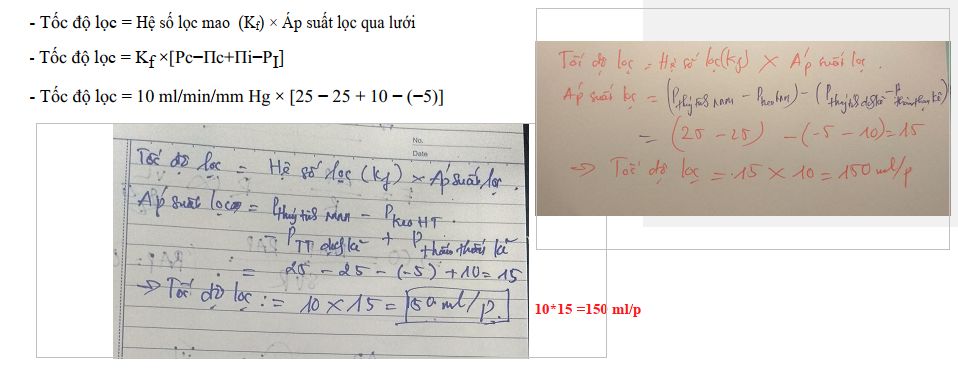 - Tốc độ lọc = Hệ số lọc mao (Kf) × Áp suất lọc qua lưới
- Tốc độ lọc = Kf ×[Pc−Πc+Πi−PI]
- Tốc độ lọc = 10 ml/min/mm Hg × [25 − 25 + 10 − (−5)]
No.
Date
Tốc độ lọc = Hệ số lọc (Kf) × Áp suất lọc.
Áp suất lọc = Pthuỷ tĩnh MM - Pkeo HT
- PTT dịch kẽ + Pthẩm thấu kẽ
= 25 - 25 - (-5) + 10 = 15
=> Tốc độ lọc := 10 × 15 = 150 ml/p.
Tốc độ lọc = Hệ số lọc(Kf) × Áp suất lọc.
Áp suất lọc = (Pthuỷ tĩnh MM - Pkeo) - (Pthuỷ tĩnh dịch kẽ - Pthẩm thấu kẽ)
= (25 - 25) - (-5 - 10) = 15
=> Tốc độ lọc = 15 × 10 = 150 ml/p
10*15 =150 ml/p